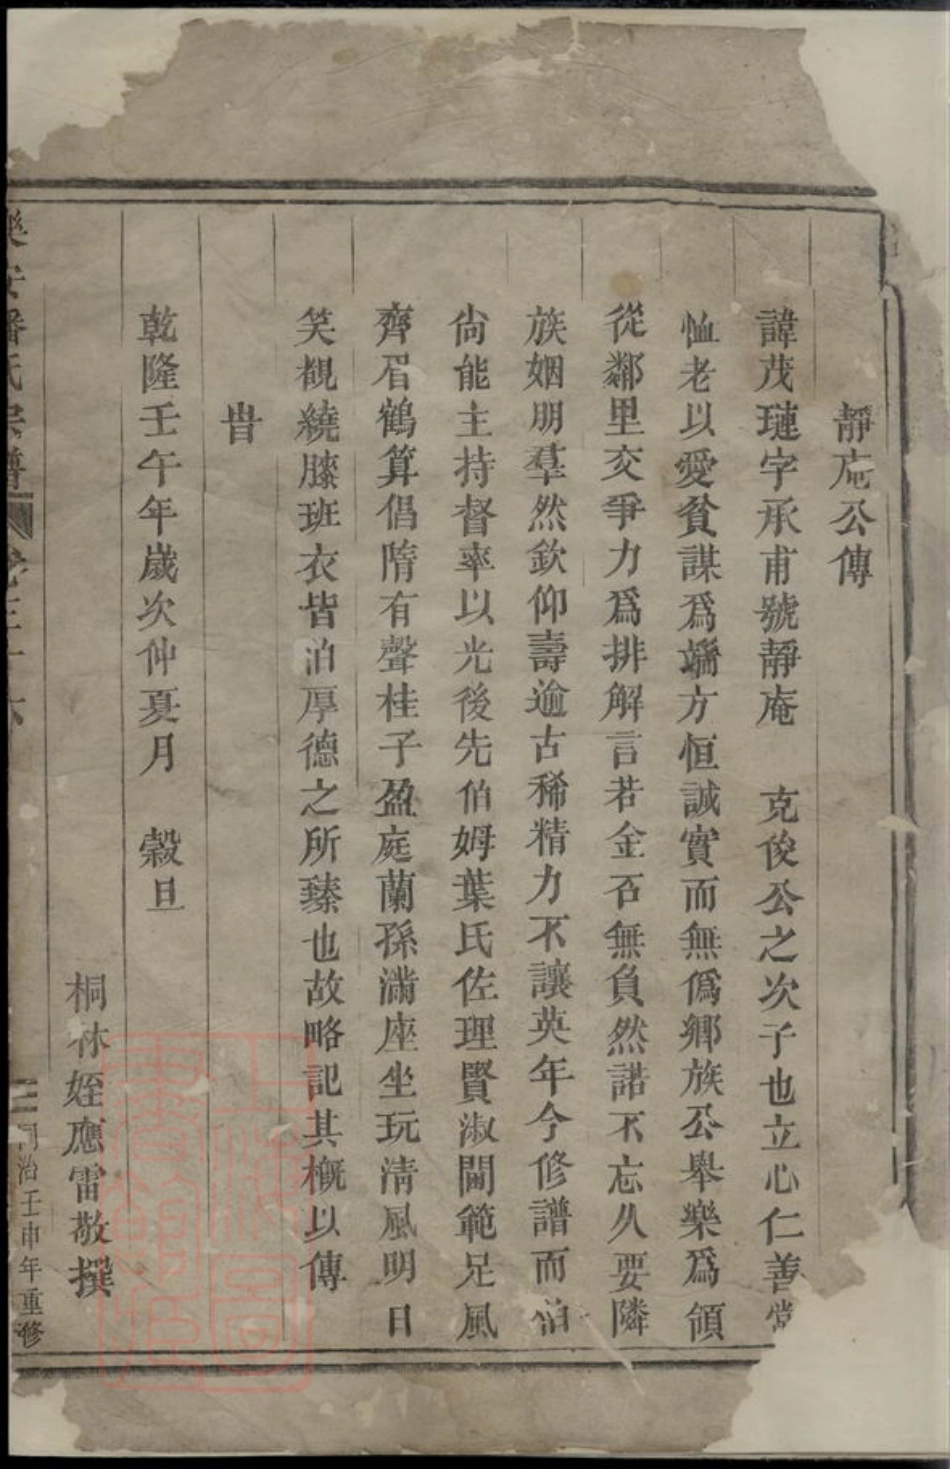 靜庵公傳
諱茂璉字承甫號靜庵 克俊公之次子也立心仁善常
恤老以愛貧謀爲端方恒誠實而無僞鄉族公舉樂爲領
從鄰里交爭力爲排解言若金石無負然諾不忘久要隣
族姻朋羣然欽仰壽逾古稀精力不讓英年今修譜而伯
尙能主持督率以光後先伯姆葉氏佐理賢淑閫範足風
齊眉鶴算倡隋有聲桂子盈庭蘭孫滿座坐玩清風明日
笑覩繞膝班衣皆泊厚德之所臻也故略記其概以傳
旹
乾隆壬午年歲次仲夏月 穀旦
桐林姪應雷敬撰
樂安潘氏宗譜 卷三十六 同治壬申年重修